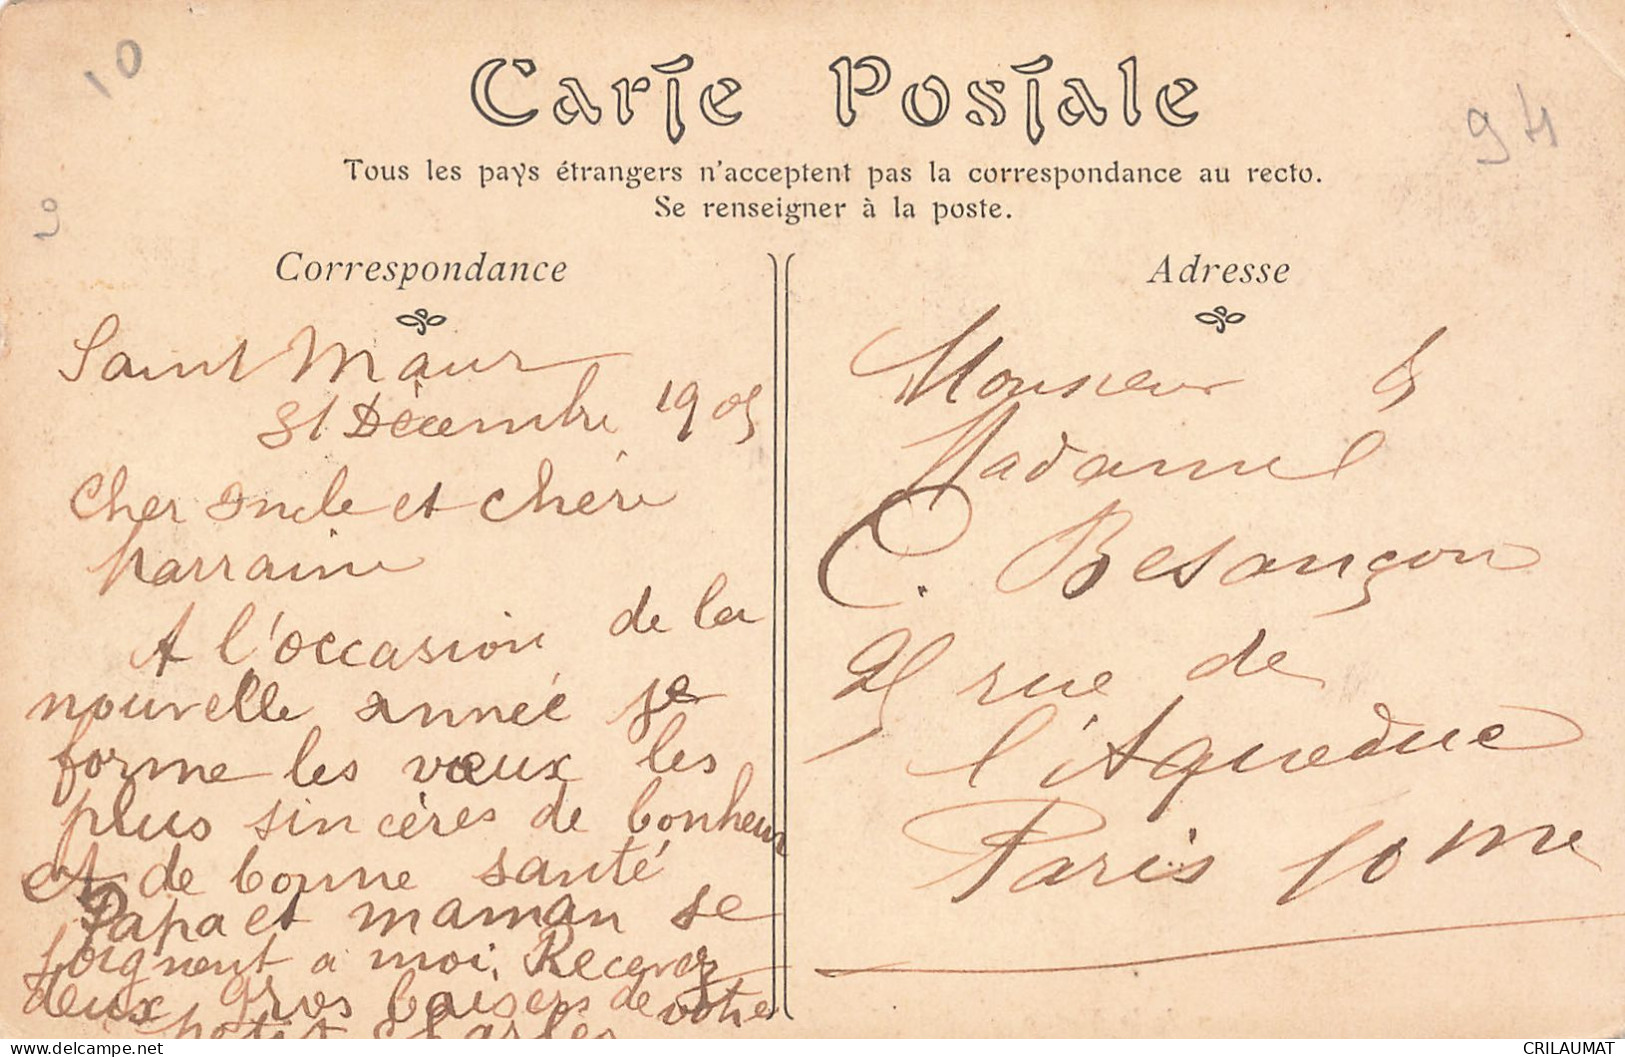 10
94
9
Carte Postale
Tous les pays étrangers n'acceptent pas la correspondance au recto.
Se renseigner à la poste.
Correspondance
Saint Maur
31 Décembre 1905
Cher Oncle et chère
Marraine
A l'occasion de la
nouvelle année je
forme les vœux les
plus sincères de bonheur
et de bonne santé
Papa et maman se
joignent a moi. Recevez
deux gros baisers de votre
petit Charles
Adresse
Monsieur &
Madame
C. Besançon
25 rue de
l'Aqueduc
Paris 10me
delcampe.net
CRILAUMAT